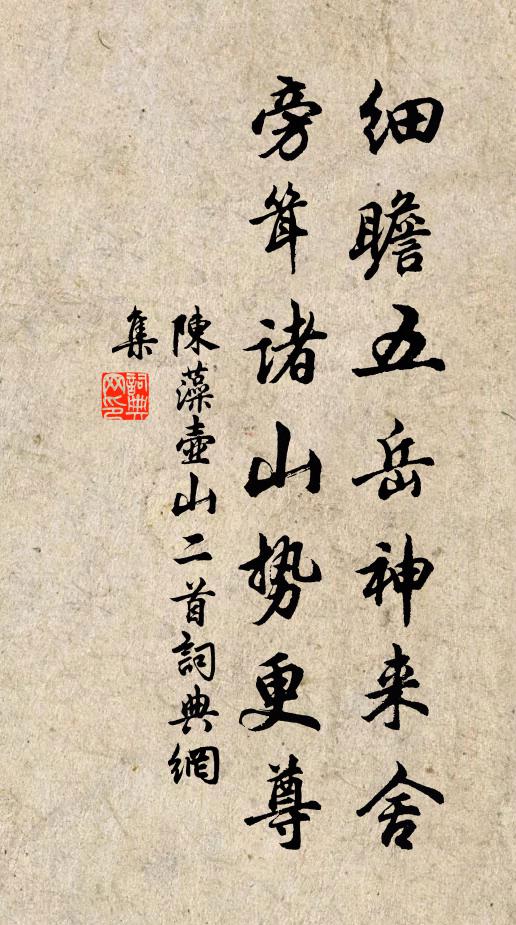 细瞻五岳神来舍
旁耸诸山势更尊
陳藻壺山二首詞典網
集
詞典
网印